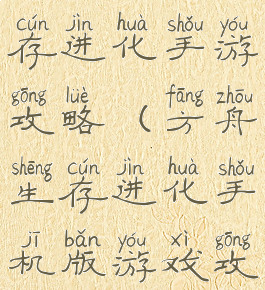 cún jìn huà shǒu yóu
存进化手游
gōng lüè fāng zhōu
攻略（方舟
shēng cún jìn huà shǒu
生存进化手
jī bǎn yóu xì gōng
机版游戏攻